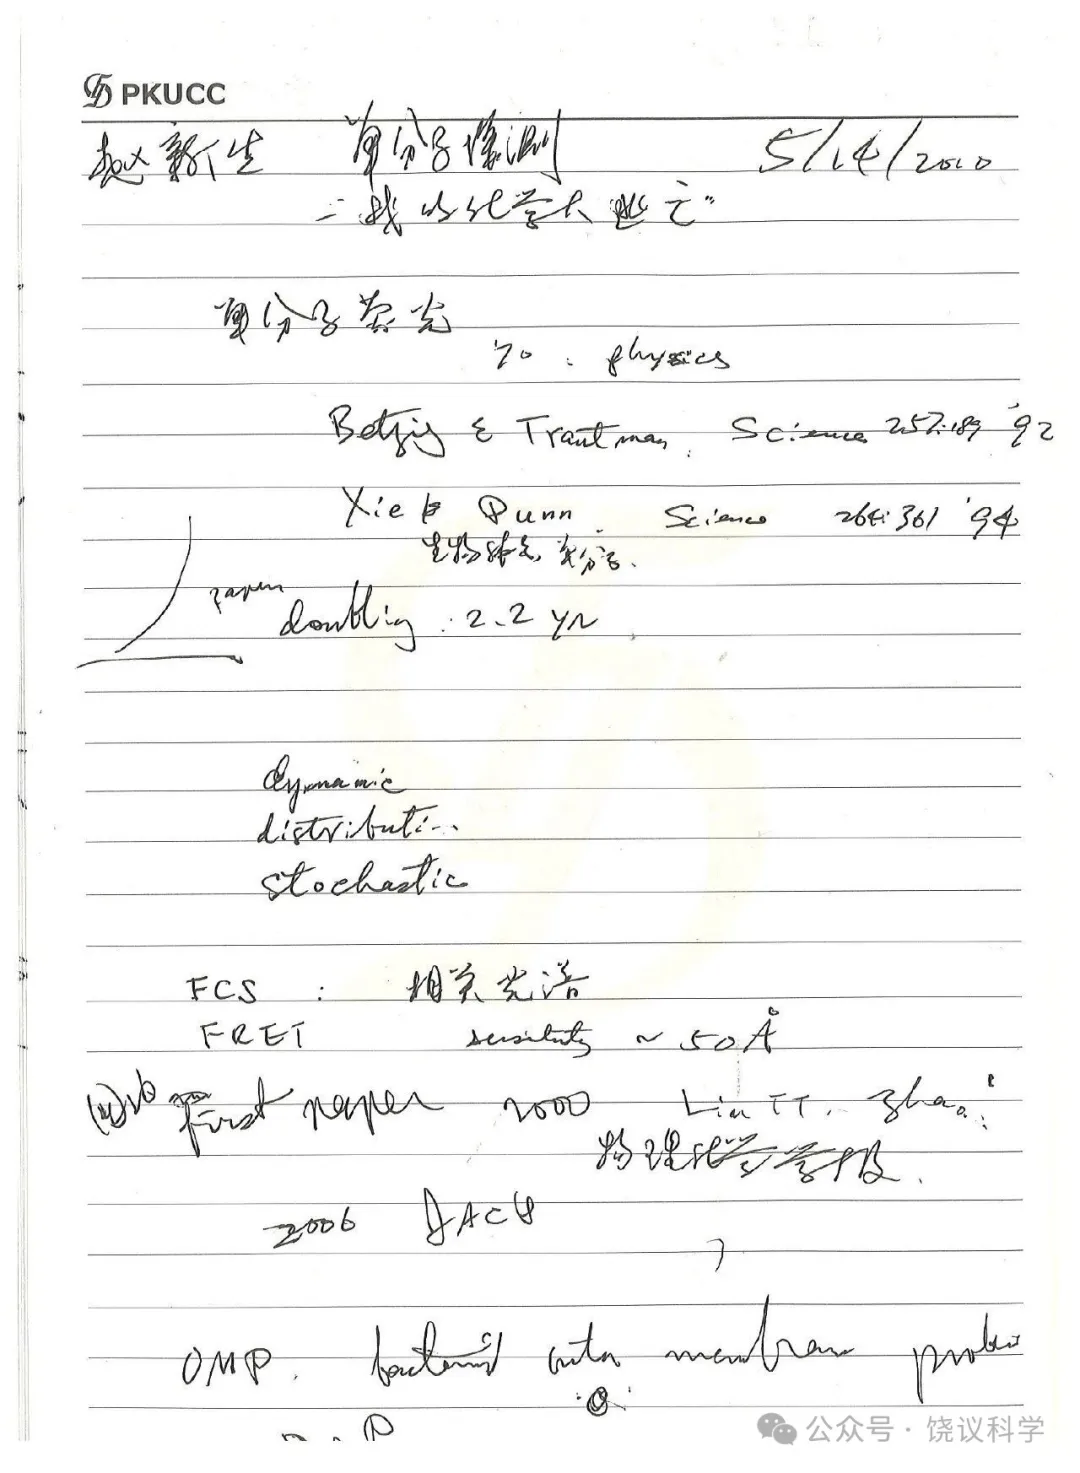 PKUCC
赵新生 单分子检测 5/14/2010
"我的化学大逃亡"
单分子荧光
'70 : physics
Betzig & Trautman. Science 257:189 '92
Xie & Dunn. Science 264:361 '94
生物体系 单分子.
paper
doubling : 2.2 yr
dynamic
distributi..
stochastic
FCS : 相关光谱
FRET sensitivity ~ 50 Å
First paper 2000 Liu TT. Zhao:
物理化学学报.
2006 JACS
OMP. bacterial outer membrane protein
公众号 · 饶议科学